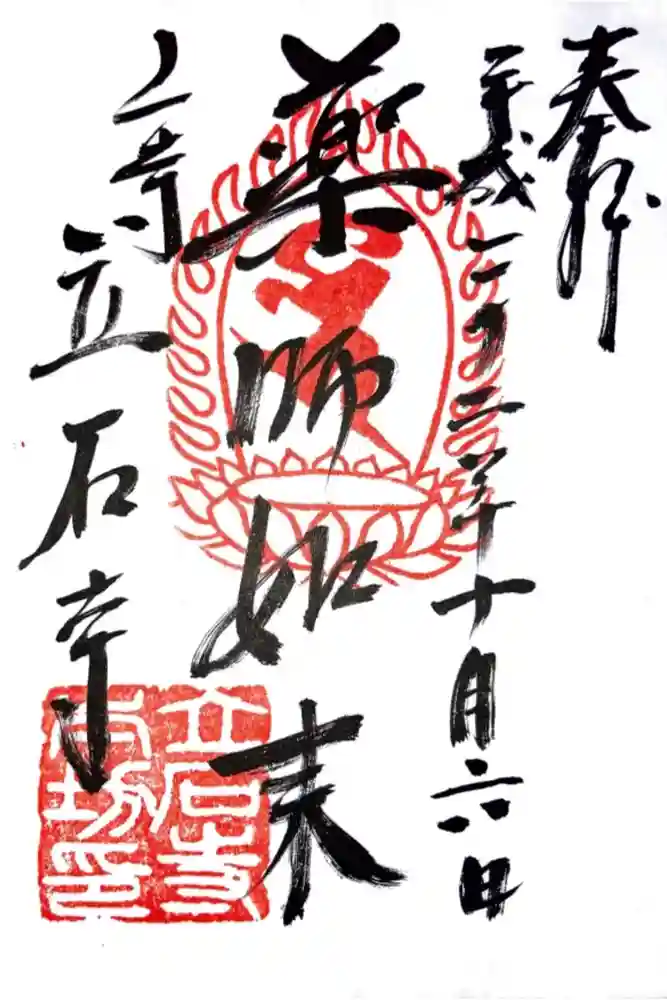 奉拝
平成二十二年十月六日
薬師如来
山寺
立石寺
立石寺
本坊印